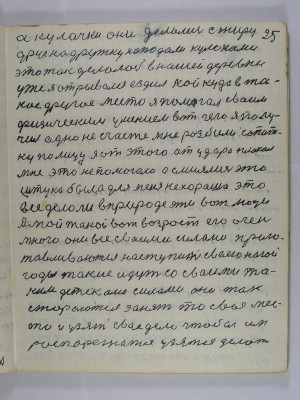 а кулачки они делались с жиру 25
друг на дружку нападали кулаками
это так делалось в нашей деревни
уже я отрывали ездил кой куда в та-
кое другое место я помогал своим
физическим умением вот чего я полу-
чил одно не счастье мне разбили
я от этого от удара плакал
мне это не помогало а смиялись это
штука была для меня нехорошая это
все делали в природе эти вот люди
А мой такой вот возраст его очен
много они все своими силами приго-
тавливаются наступит своего ногой
годы такие идут со своими та-
кими детскими силами они так
стараются занят то свое мес-
то и взят свое дело чтобы им
распоряжатся взятся делат